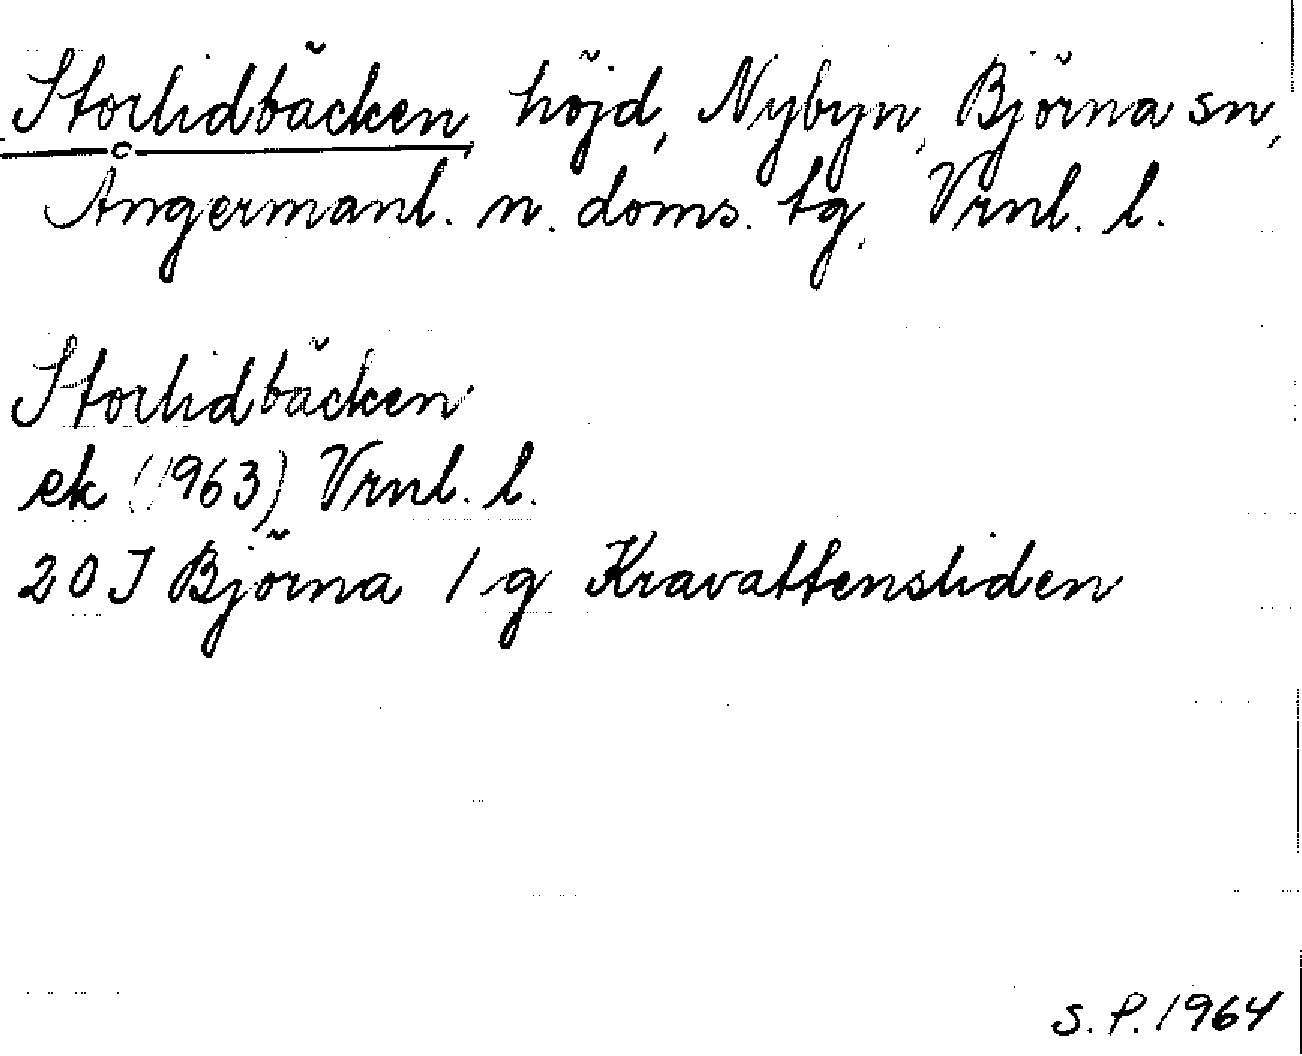 Storlidbäcken höjd, Nybyn, Björna sn,
Ångermanl. n. doms. tg, Vrnl. l.
Storlidbäcken
ek (1963) Vrnl. l.
20 J Björna 1 g Kravattensliden
S. P. 1964